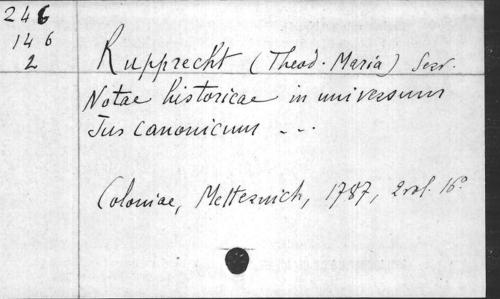 246
146
2
Rupprecht (Theod. Maria) Serv.
Notae historicae in universum
Jus canonicum - - -
Coloniae, Metternich, 1787, 2 vol. 16°